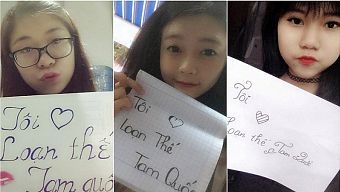 Tôi ♡
Loạn thế
Tam quố
Tôi ♡
Loạn Thế
Tam Quốc
Tôi ♡
Loạn thế Tam Quốc